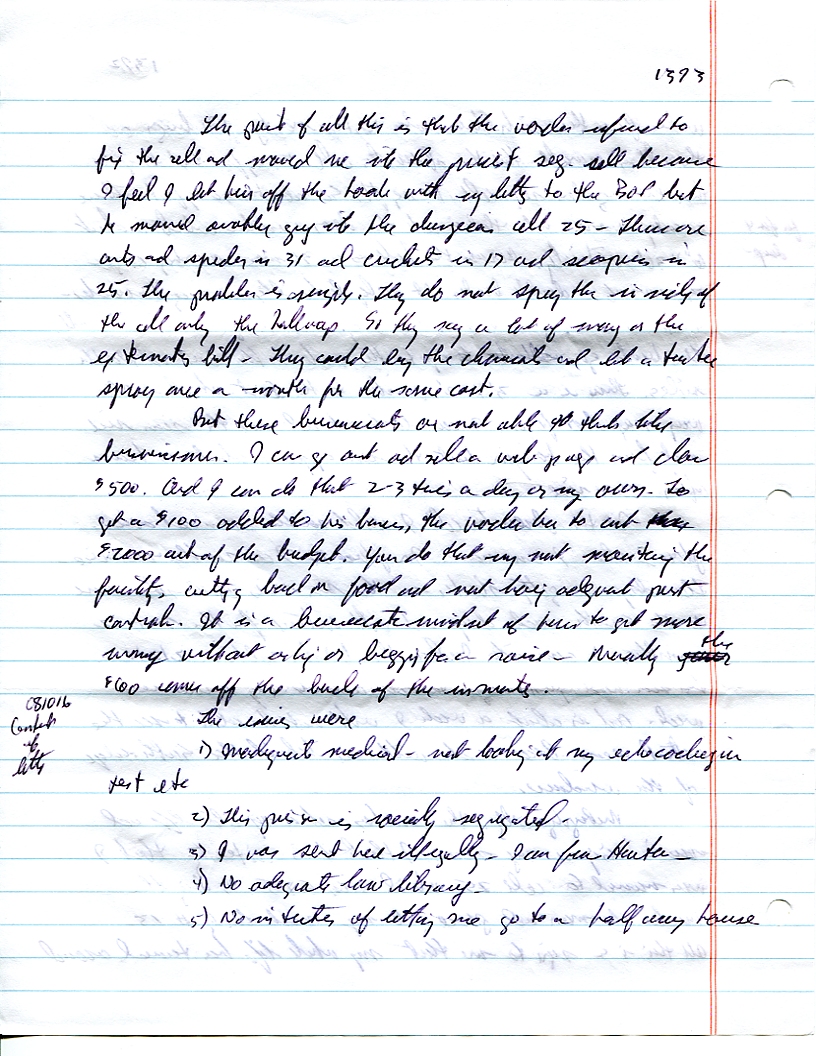 1393
The point of all this is that the warden refused to
fix the cell and moved me into the present seg. cell because
I feel I let him off the hook with my letter to the BOP but
he moved another guy into the dungeon cell 25 - There are
ants and spiders in 31 and crickets in 17 and scorpions in
25. The problem is simple. They do not spray the inside of
the cell only the hallway. So they say a lot of money on the
exterminator bill - They could buy the chemicals and let an inmate
spray once a month for the same cost.
But these bureaucrats are not able to think like
businessmen. I can go out and sell a web page and clear
$500. And I can do that 2-3 times a day on my own. To
get a $100 added to his bonus, the warden has to cut
$2000 out of the budget. You do that by not maintaining the
facility, cutting back on food and not having adequate pest
control. It is a bureaucratic mindset of how to get more
money without asking or begging for a raise - Morally the
$100 comes off the backs of the inmates.
The issues were
081016
Contents
of
letter
1) Inadequate medical - not looking at my echocardiogram
test etc
2) This prison is racially segregated -
3) I was sent here illegally - I am from
4) No adequate law library -
5) No intention of letting me go to a half way house